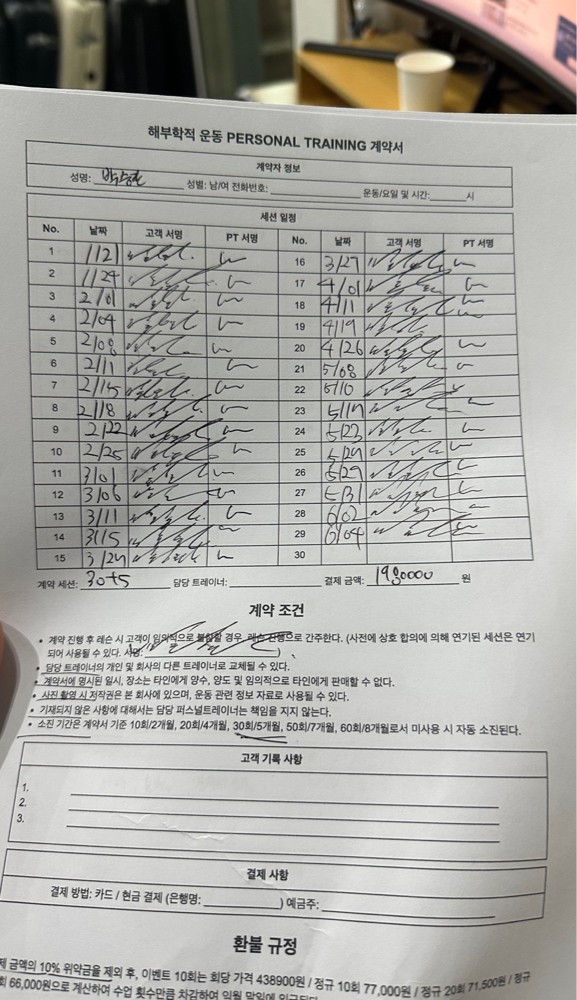 해부학적 운동 PERSONAL TRAINING 계약서
계약자 정보
성명: 성별: 남/여 전화번호: 운동/요일 및 시간: 시
세션 일정
No. 날짜 고객 서명 PT 서명 No. 날짜 고객 서명 PT 서명
1 1/21 16 3/27
2 1/24 17 4/01
3 2/01 18 4/11
4 2/04 19 4/19
5 2/08 20 4/26
6 2/11 21 5/08
7 2/15 22 5/10
8 2/18 23 5/17
9 2/22 24 5/23
10 2/25 25
11 3/01 26 5/29
12 3/06 27 5/31
13 3/11 28 6/02
14 3/15 29 6/04
15 3/24 30
계약 세션: 30+5 담당 트레이너: 결제 금액: 1980000 원
계약 조건
• 계약 진행 후 레슨 시 고객이 임의적으로 불참할 경우, 레슨 진행으로 간주한다. (사전에 상호 합의에 의해 연기된 세션은 연기
되어 사용될 수 있다. 서명: )
• 담당 트레이너의 개인 및 회사의 다른 트레이너로 교체될 수 있다.
• 계약서에 명시된 일시, 장소는 타인에게 양수, 양도 및 임의적으로 타인에게 판매할 수 없다.
• 사진 촬영 시 저작권은 본 회사에 있으며, 운동 관련 정보 자료로 사용될 수 있다.
• 기재되지 않은 사항에 대해서는 담당 퍼스널트레이너는 책임을 지지 않는다.
• 소진 기간은 계약서 기준 10회/2개월, 20회/4개월, 30회/5개월, 50회/7개월, 60회/8개월로서 미사용 시 자동 소진된다.
고객 기록 사항
1.
2.
3.
결제 사항
결제 방법: 카드 / 현금 결제 (은행명: ) 예금주:
환불 규정
제 금액의 10% 위약금을 제외 후, 이벤트 10회는 회당 가격 438900원 / 정규 10회 77,000원 / 정규 20회 71,500원 / 정규
회 66,000원으로 계산하여 수업 횟수만큼 차감하여 익월 말일에